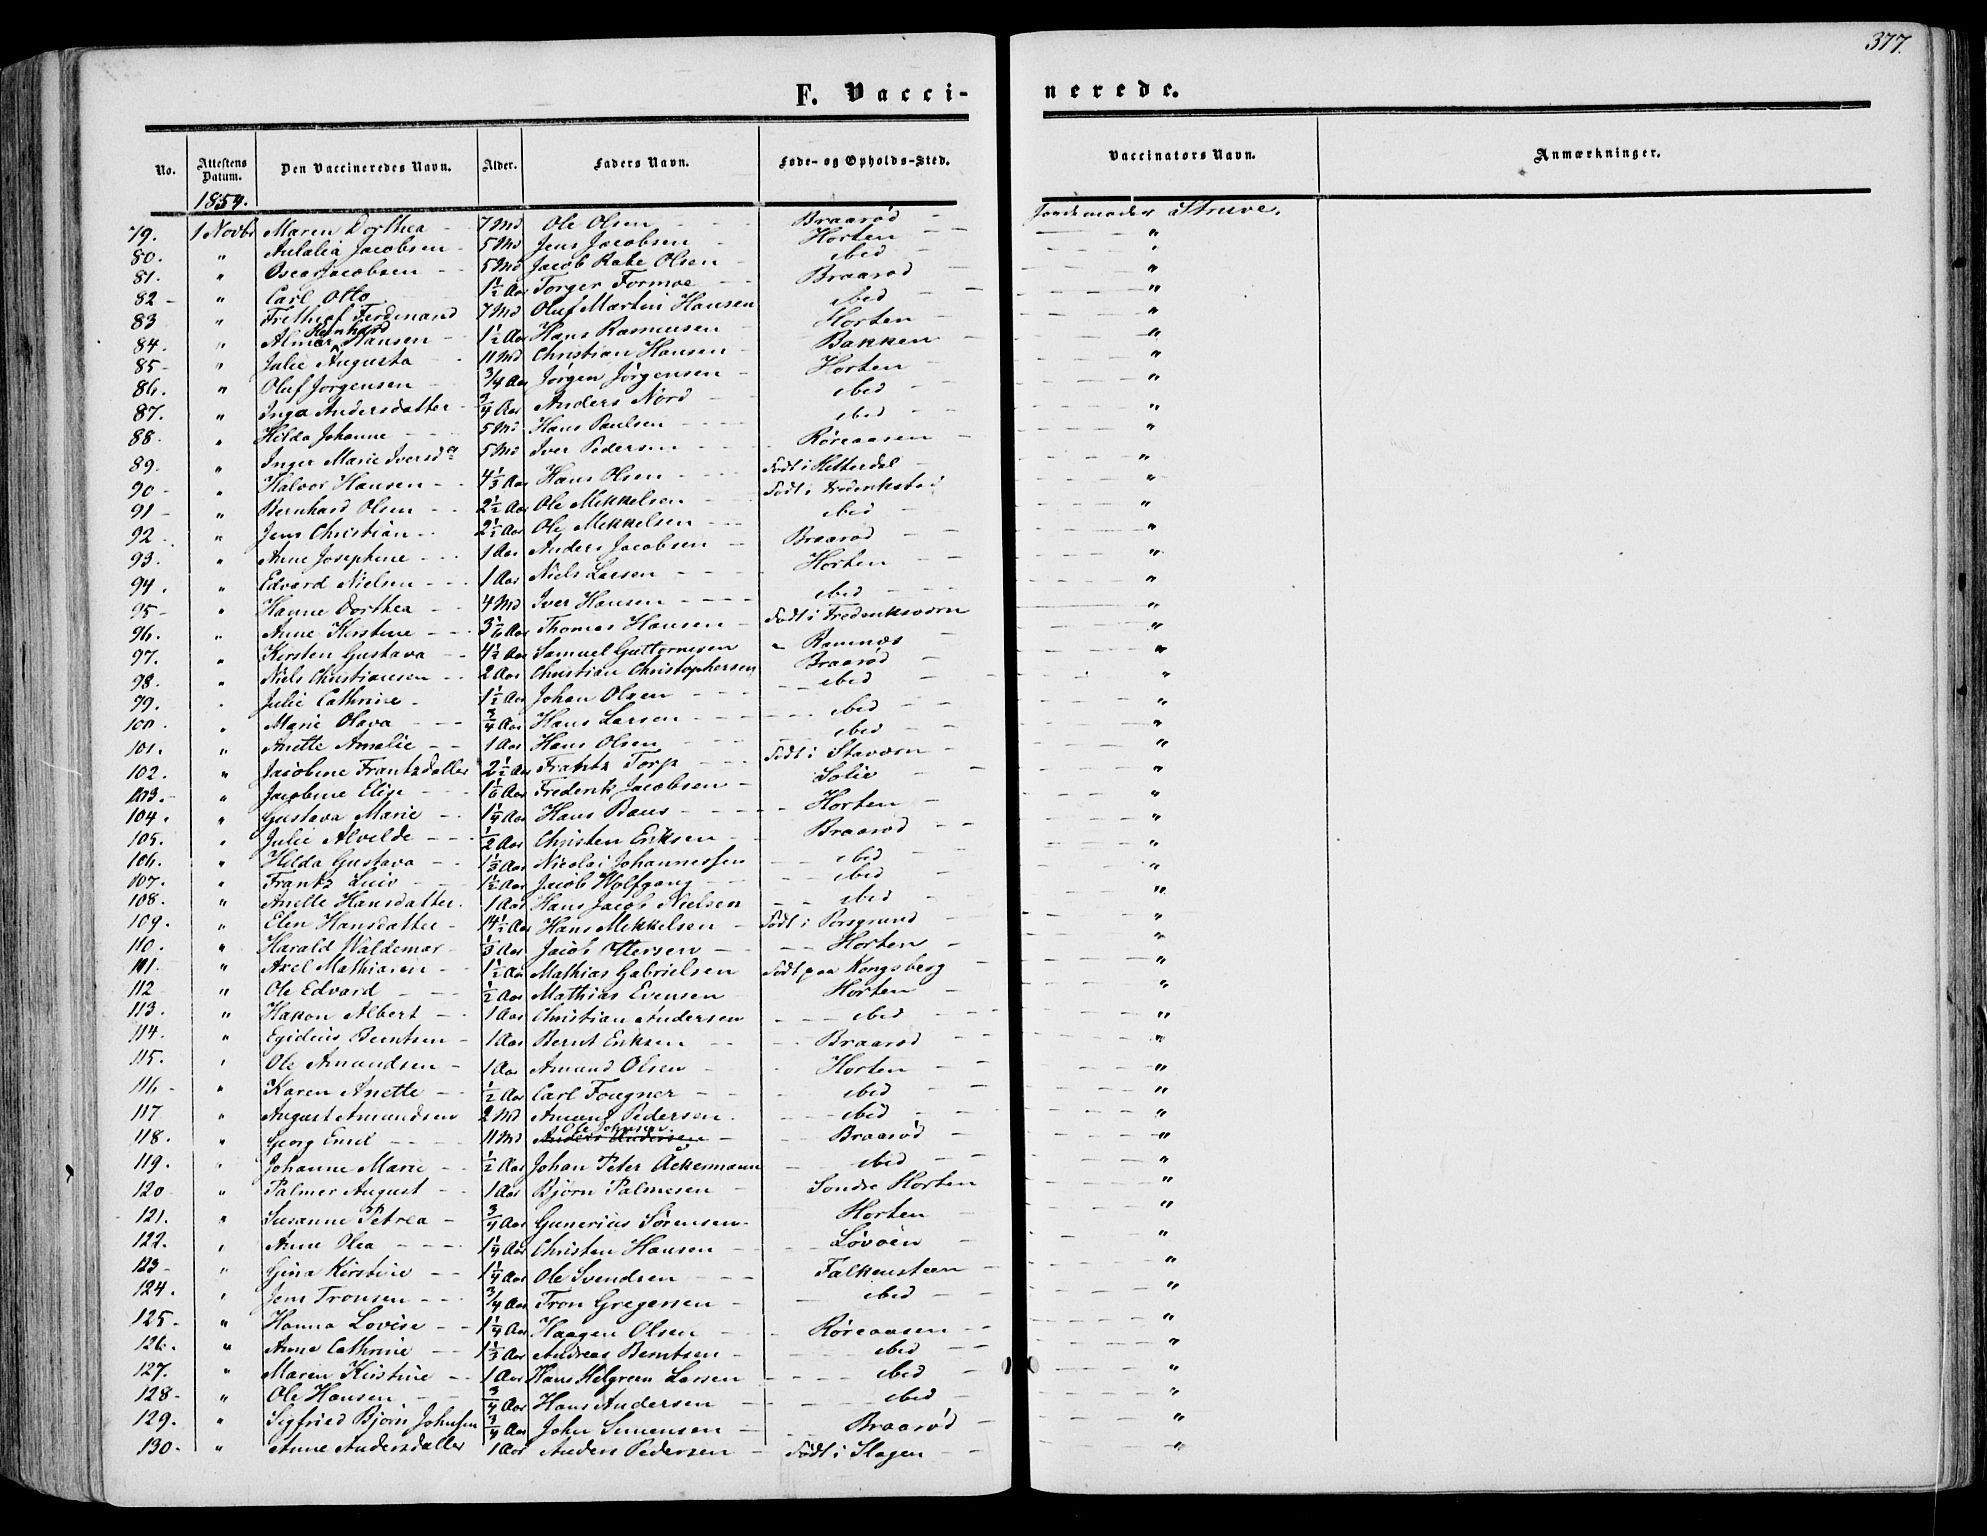 377.
F. Vacci-
nerede.
No. Attestens Datum. Den Vaccineredes Navn. Alder. Faders Navn. Føde- og Opholds-Sted. Vaccinators Navn. Anmærkninger.
1854.
79. 1 Novbr Maren Dorthea 7 Md Ole Olsen Braarød Jordemoder Struve.
80. " Aulalia Jacobsen 5 Md Jens Jacobsen Horten "
81. " Oscar Jacobsen 5 Md Jacob Rabe Olsen ibid "
82 " Carl Otto 1½ Aar Torger Formoe Braarød "
83 " Frithjof Ferdinand 7 Md Oluf Martin Hansen ibid "
84. " Almar Bernhard Hansen 1½ Aar Hans Rasmusen Horten "
85 " Julie Augusta 11 Md Christian Hansen Bakken "
86. " Oluf Jørgensen ¾ Aar Jørgen Jørgensen Horten "
87. " Inga Andersdatter ¾ Aar Anders Nord ibid "
88. " Hilda Johanne 5 Md Hans Paulsen ibid "
89. " Inger Marie Iversdr 5 Md Iver Pedersen Røreaasen "
90 " Halvor Hansen 4⅓ Aar Hans Olsen Født i Hitterdal "
91 " Bernhard Olsen 2½ Aar Ole Mikkelsen Født i Frederikstad "
92 " Jens Christian 2½ Aar Ole Mikkelsen ibid "
93. " Anne Josephine 1 Aar Anders Jacobsen Braarød "
94. " Edvard Nielsen 1 Aar Niels Larsen Horten "
95 " Hanne Dorthea 4 Md Iver Hansen ibid "
96. " Anne Kirstine 3⅙ Aar Thomas Hansen Født i Frederiksværn "
97. " Kirsten Gustava 4½ Aar Samuel Guttormsen " Ramnæs "
98. " Niels Christiansen 2 Aar Christian Christophersen Braarød "
99. " Julie Cathrine 1½ Aar Johan Olsen ibid "
100 " Marie Olava ¾ Aar Hans Larsen ibid "
101. " Anette Amalie 1 Aar Hans Olsen ibid "
102. " Jacobine Frantzdatter 2½ Aar Frantz Torp Født i Staværn "
103. " Jacobine Elise 1⅙ Aar Frederik Jacobsen Solie "
104. " Gustava Marie 1¼ Aar Hans Baus Horten "
105. " Julie Alvilde ½ Aar Christen Eriksen Braarød "
106. " Hilda Gustava 1⅓ Aar Nicolai Johannessen ibid "
107. " Frantz 1½ Aar Jacob Wolfgang ibid "
108. " Anette Hansdatter 1 Aar Hans Jacob Nielsen ibid "
109. " Elen Hansdatter 14½ Aar Hans Mikkelsen Født i Porsgrund "
110. " Harald Waldemar ⅓ Aar Jacob Ottersen Horten "
111. " Axel Mathiasen 1½ Aar Mathias Gabrielsen Født paa Kongsberg "
112 " Ole Edvard ½ Aar Mathias Evensen Horten "
113. " Hakon Albert 1 Aar Christian Andersen ibid "
114. " Egidius Berntsen 1 Aar Bernt Eriksen Braarød "
115. " Ole Amundsen 1 Aar Amund Olsen Horten "
116 " Karen Anette ½ Aar Carl Fougner ibid "
117 " August Amundsen 2 Md Amund Pedersen ibid "
118. " Georg Emil 11 Md Anders Andersen Ole Johnsen Braarød "
119. " Johanne Marie ½ Aar Johan Peter Åckermann ibid "
120 " Palmer August 1 Aar Bjørn Palmesen Søndre Horten "
121. " Susanne Petrea ¾ Aar Gunerius Sørensen Horten "
122. " Anne Olea 1¼ Aar Christen Hansen Løvøen "
123 " Gina Kirstine 1¼ Aar Ole Svendsen Falkensteen "
124. " Jens Tronsen ¾ Aar Tron Gregersen ibid "
125 " Hanna Lovise 1¼ Aar Haagen Olsen Røreaasen "
126. " Anne Cathrine 1⅓ Aar Andreas Berntsen ibid "
127. " Maren Kirstine 1 Aar Hans Helgreen Larsen ibid "
128 " Ole Hansen ¾ Aar Hans Andersen ibid "
129. " Sigfried Bjørn Johnsen ¾ Aar John Simensen Braarød "
130 " Anne Andersdatter 1 Aar Anders Pedersen Født i Slagen "